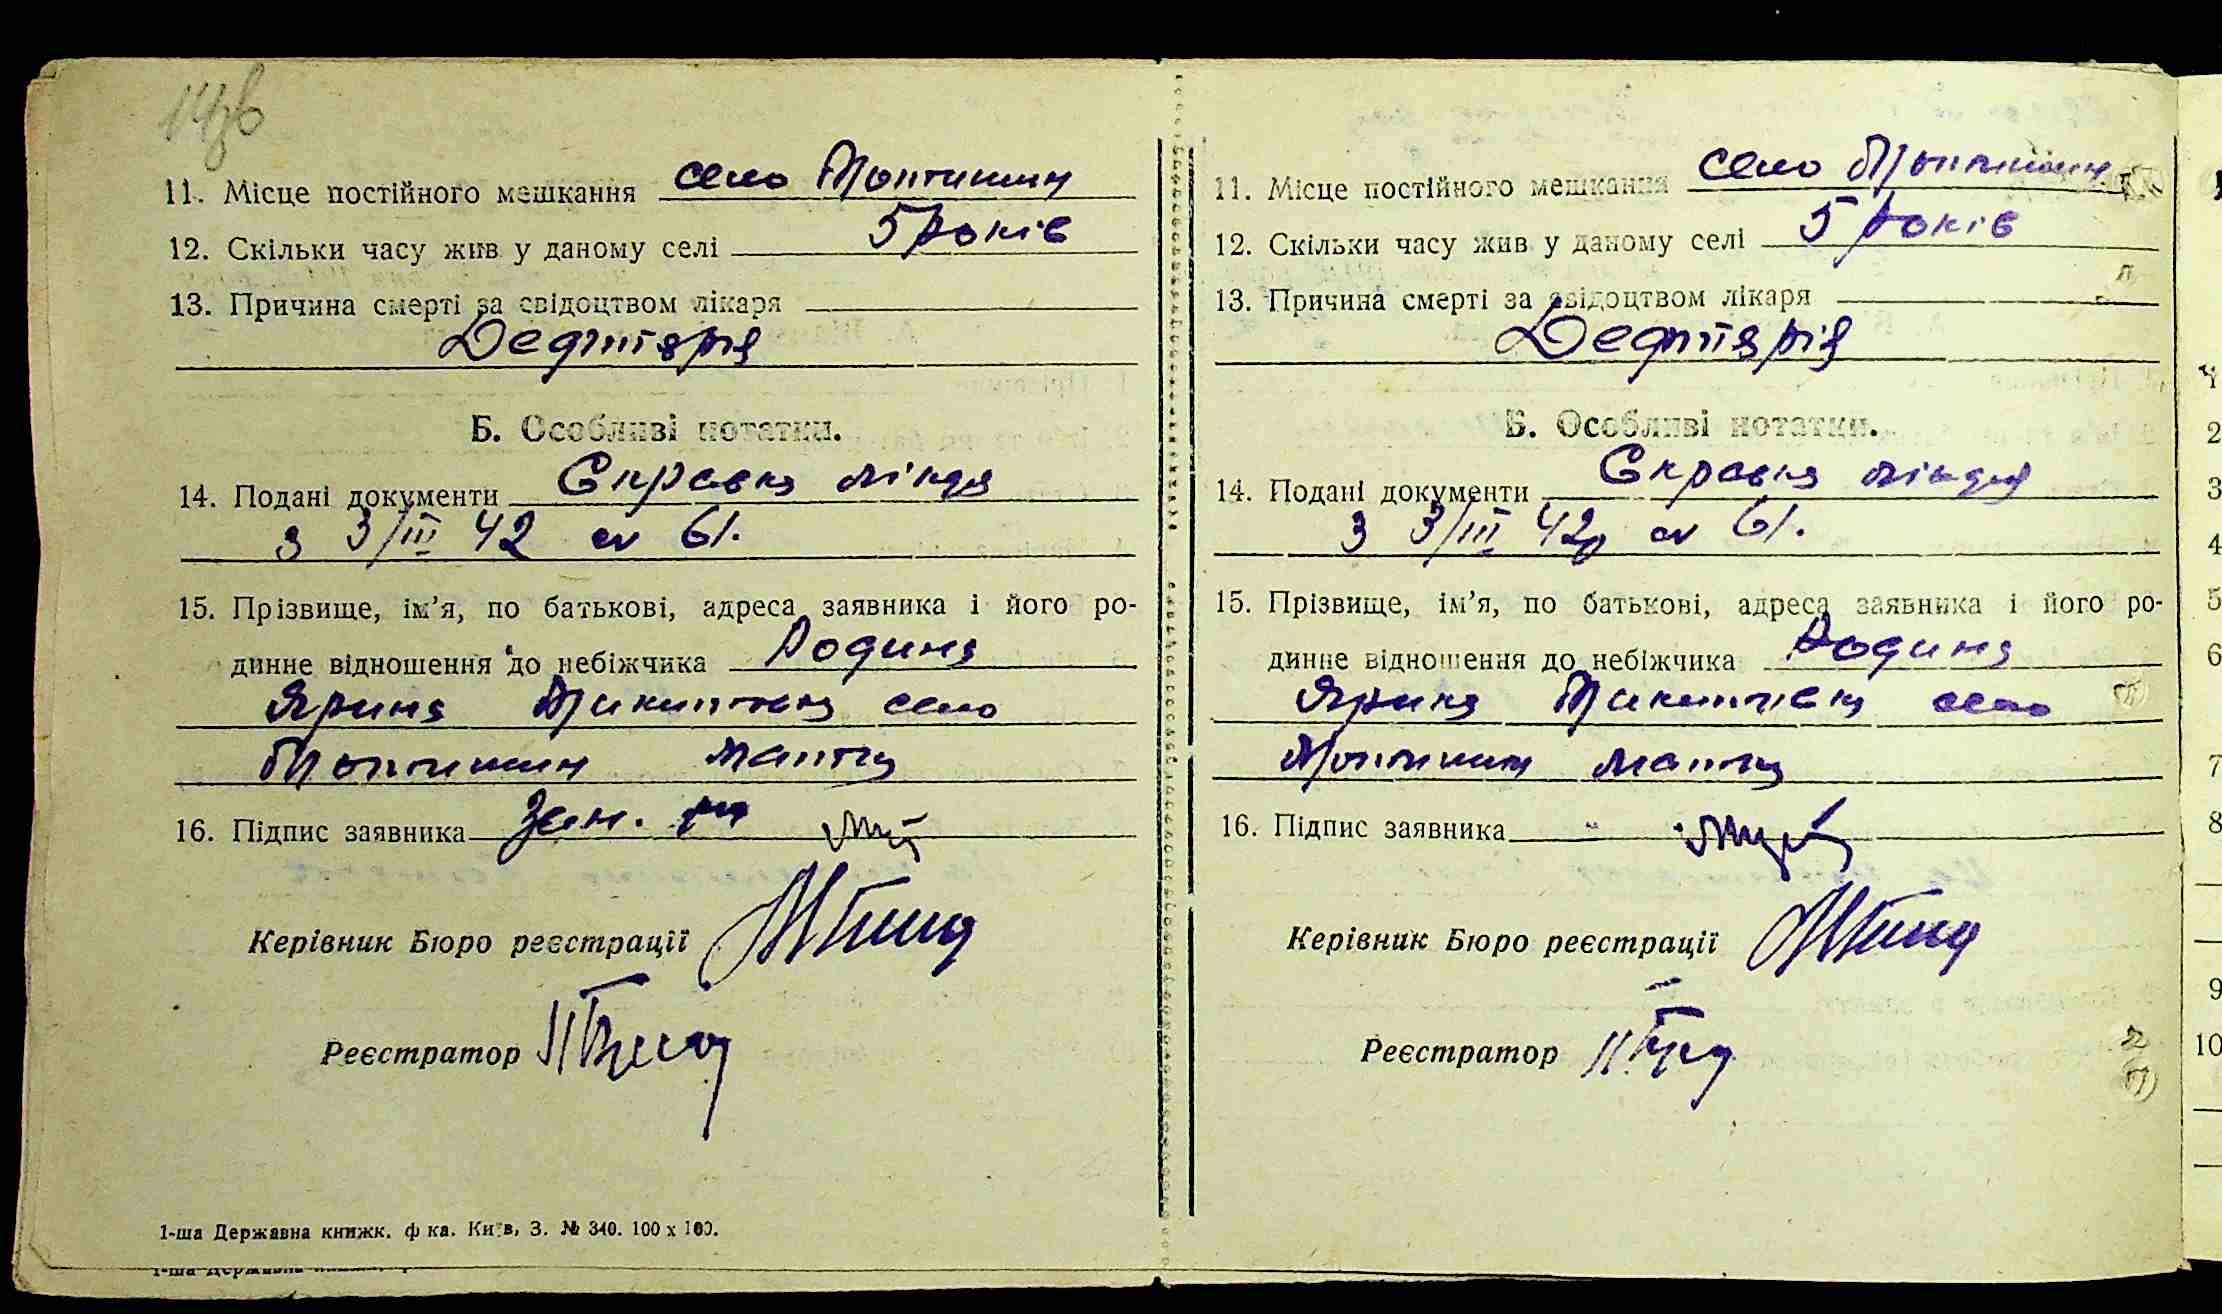 11. Місце постійного мешкання село Мотижин
12. Скільки часу жив у даному селі 5 років
13. Причина смерті за свідоцтвом лікаря
Дефтярія
Б. Особливі нотатки.
14. Подані документи Справка
з 3/III 42 61.
15. Прізвище, ім'я, по батькові, адреса заявника і його ро-
динне відношення до небіжчика Родина
Ярина Микитівна село
Мотижин мати
16. Підпис заявника
Керівник Бюро реєстрації
Реєстратор
1-ша Державна книжк. ф ка. Київ, З. № 340. 100 х 100.
11. Місце постійного мешкання село Мотижин
12. Скільки часу жив у даному селі 5 років
13. Причина смерті за свідоцтвом лікаря
Дефтярія
Б. Особливі нотатки.
14. Подані документи Справка
з 3/III 42р 61.
15. Прізвище, ім'я, по батькові, адреса заявника і його ро-
динне відношення до небіжчика Родина
Ярина Микитівна село
Мотижин мати
16. Підпис заявника
Керівник Бюро реєстрації
Реєстратор
2
3
4
5
6
7
8
9
10